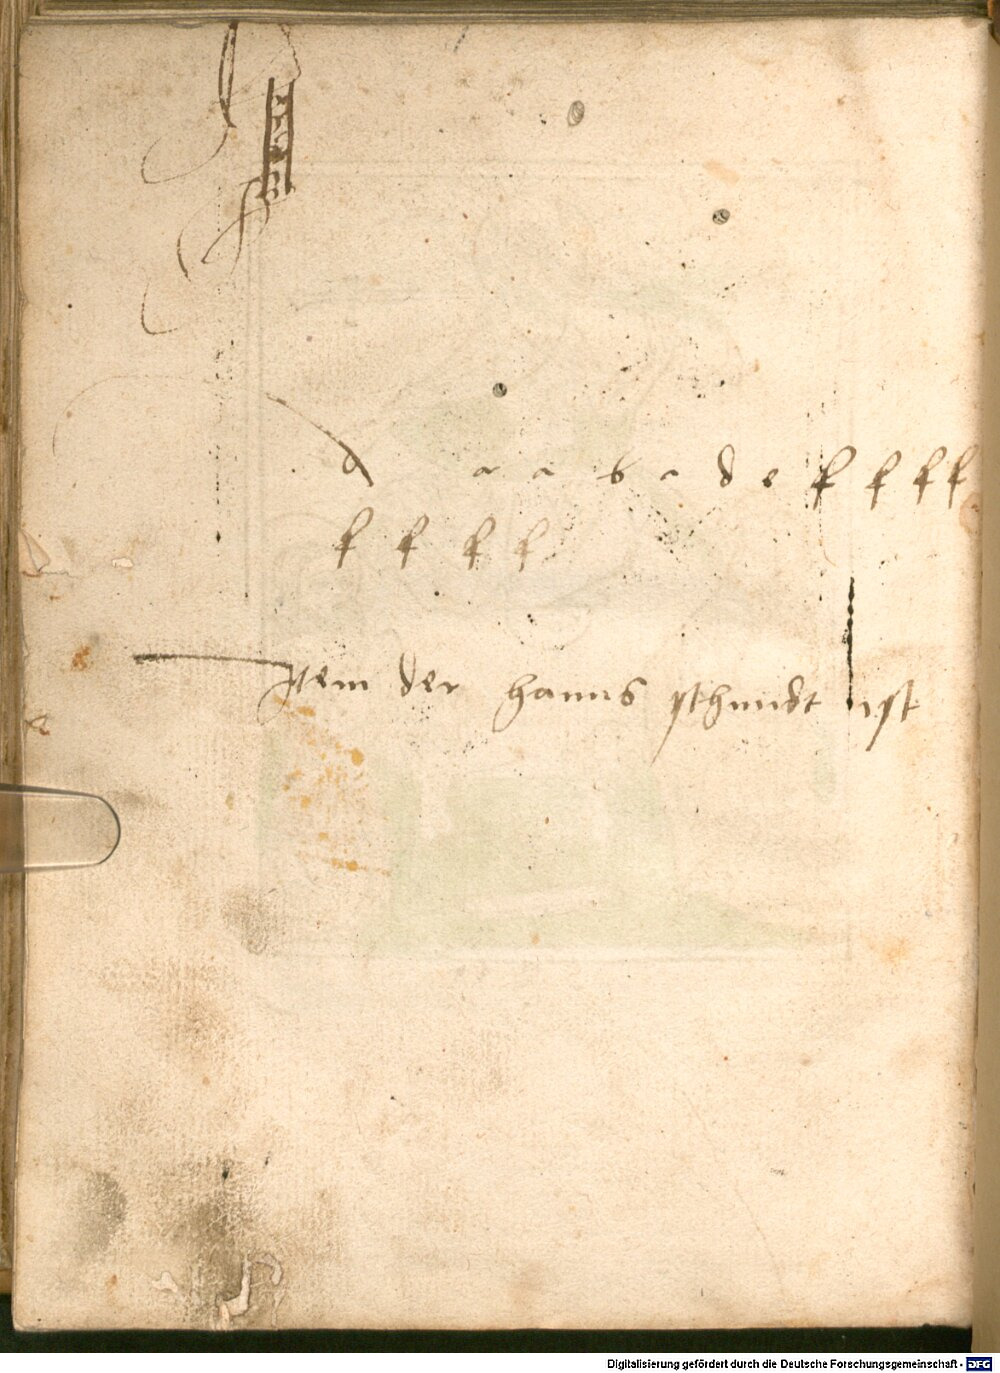 a a b c d e f f f f
f f f f
Item der hanns schmidt ist
Digitalisierung gefördert durch die Deutsche Forschungsgemeinschaft - DFG